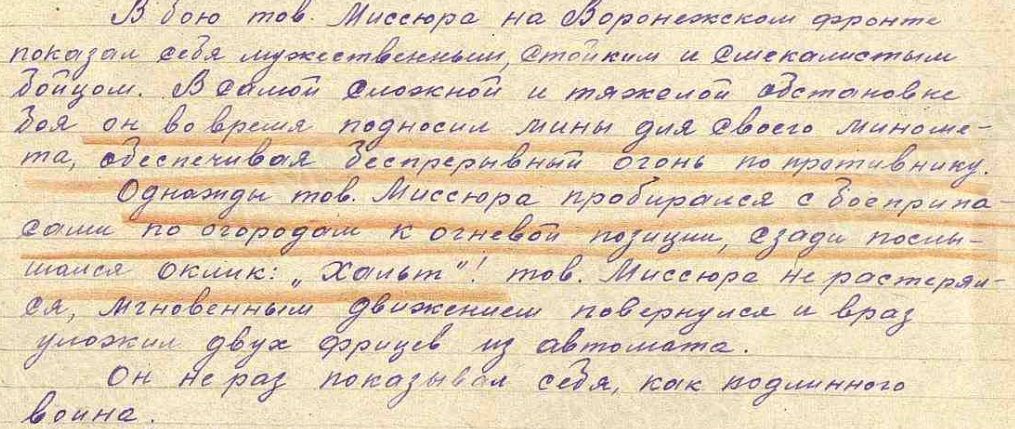 В бою тов. Миссюра на Воронежском фронте
показал себя мужественным, стойким и смекалистым
бойцом. В самой сложной и тяжелой обстановке
боя он во время подносил мины для своего миноме-
та, обеспечивая беспрерывный огонь по противнику.
Однажды тов. Миссюра пробирался с боеприпа-
сами по огородам к огневой позиции, сзади послы-
шался оклик: „Хальт"! тов. Миссюра не растерял-
ся, мгновенным движением повернулся и враз
уложил двух фрицев из автомата.
Он не раз показывал себя, как подлинного
воина.